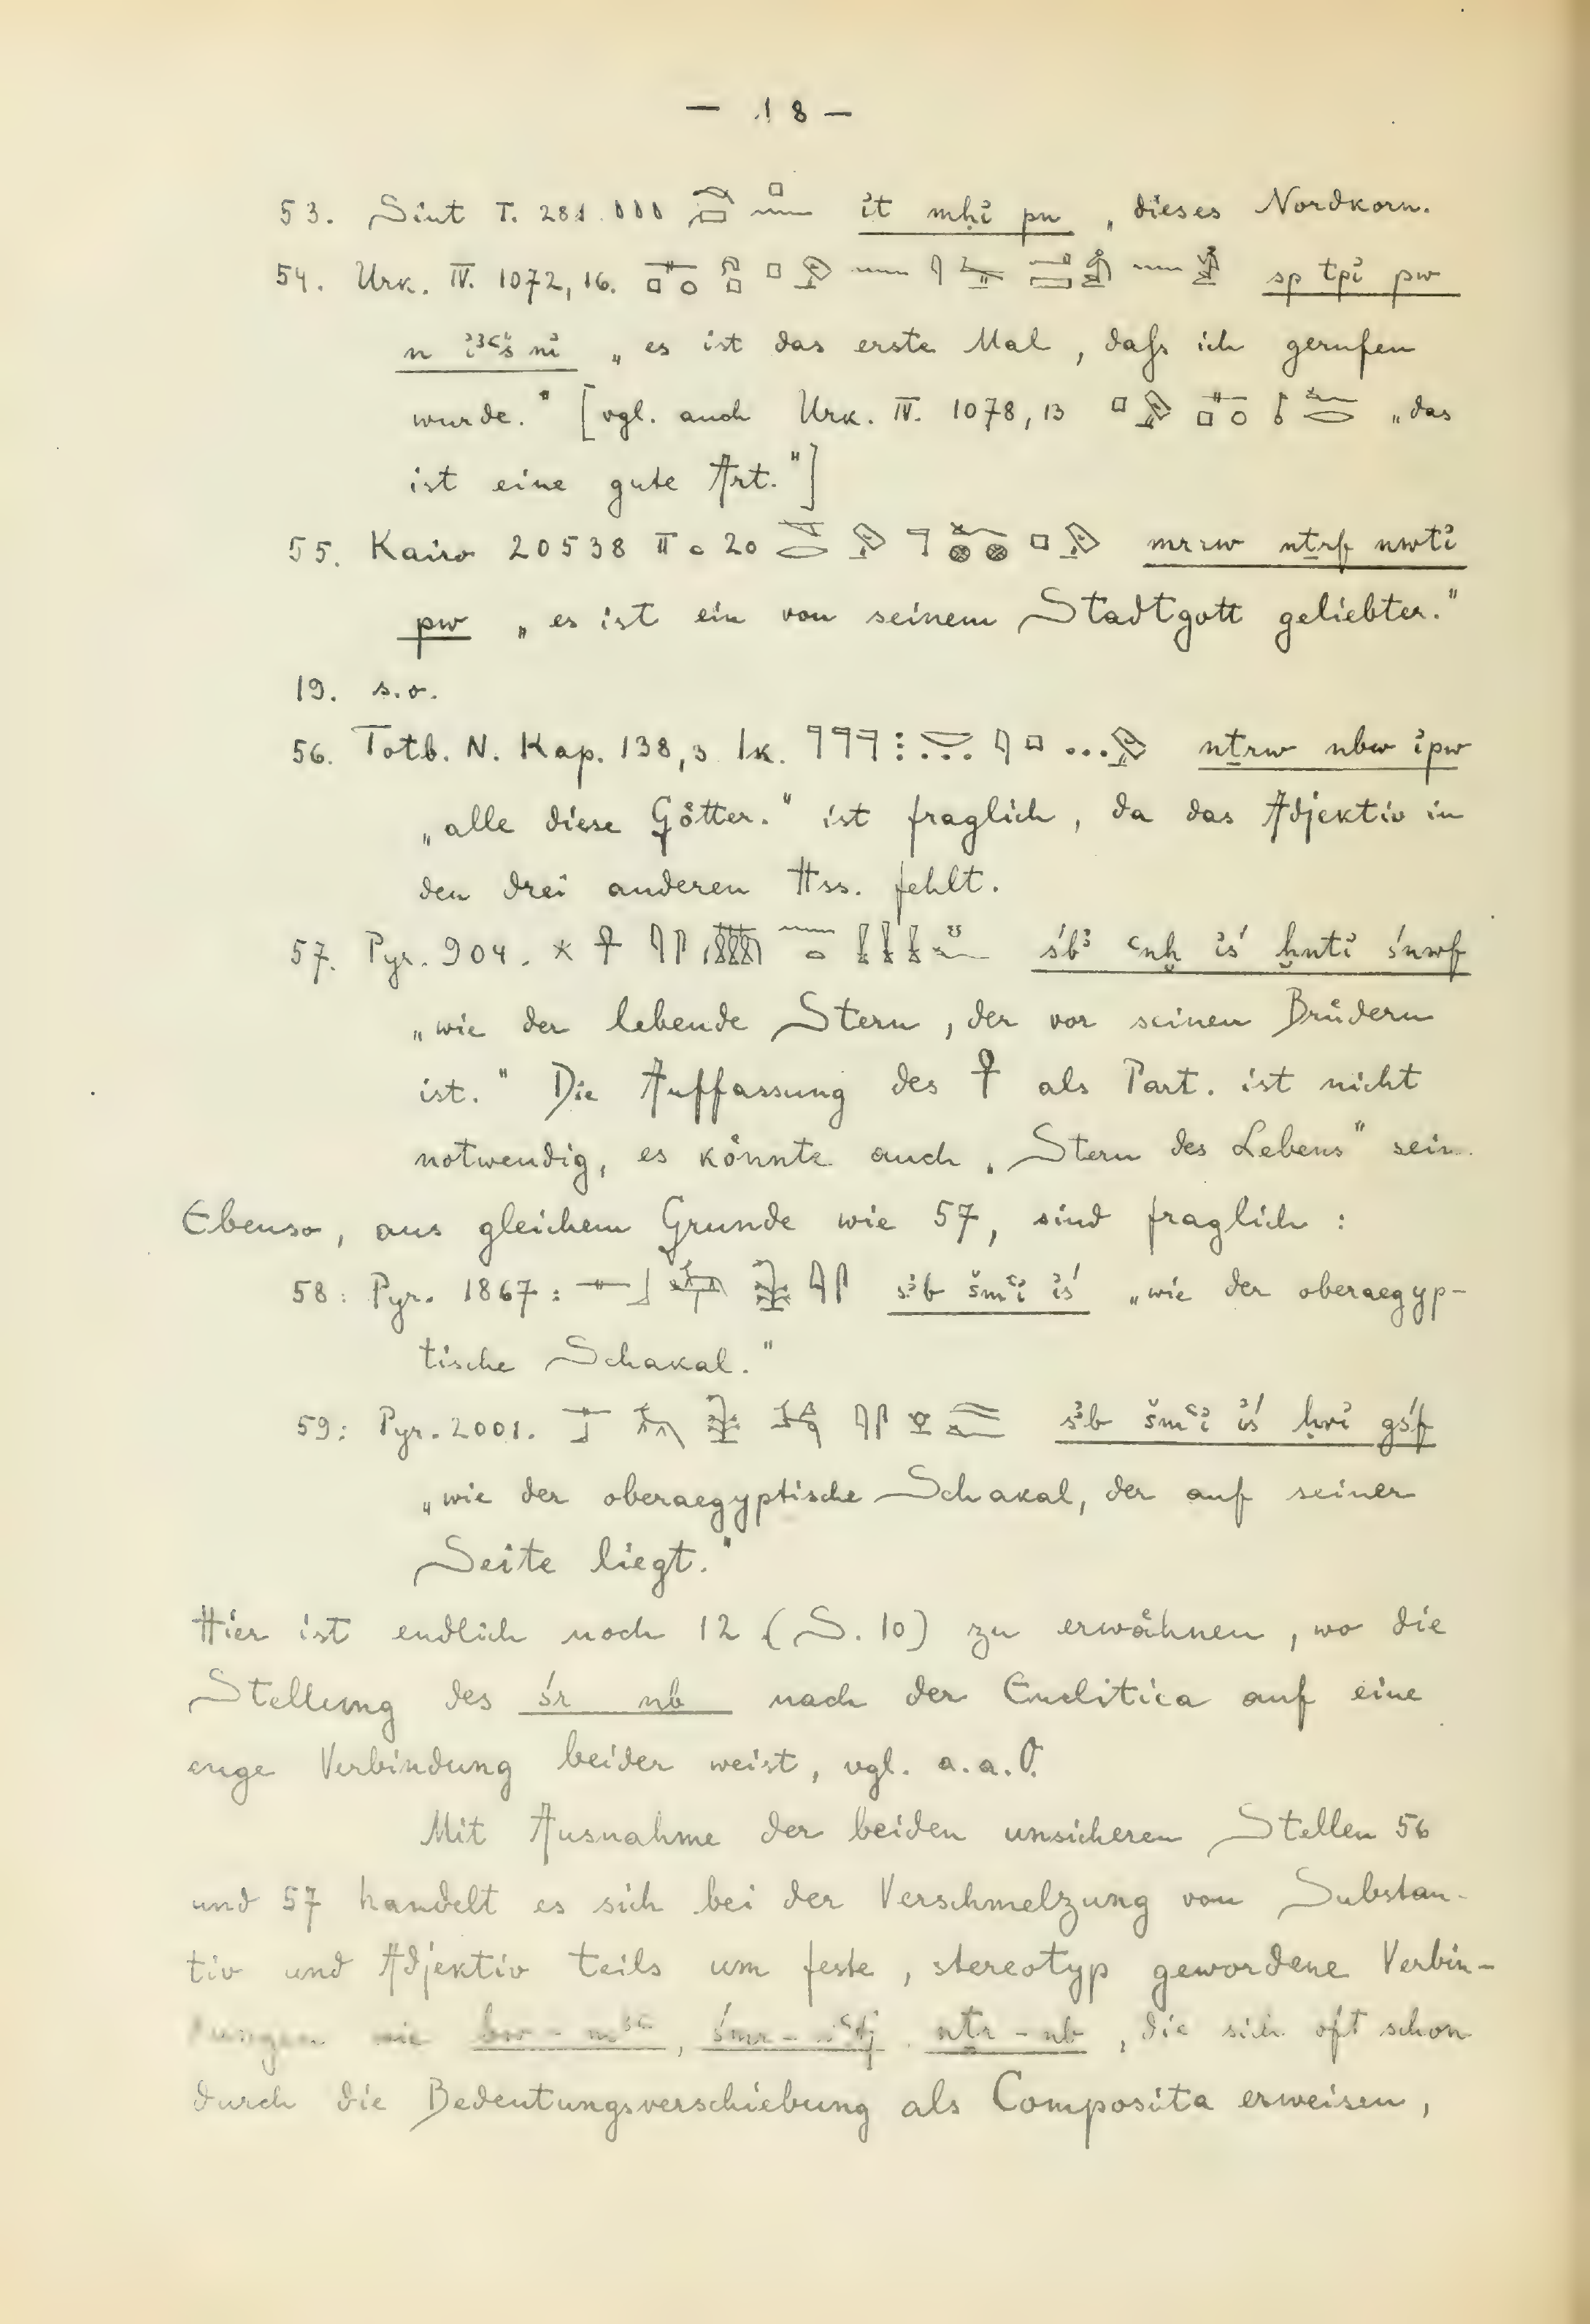 — 18 —
53. Siut T. 281. it mḥi pn „dieses Nordkorn.
54. Urk. IV. 1072, 16. sp tpi pw
n iꜣꜥš ni „es ist das erste Mal, daſs ich gerufen
wurde." [vgl. auch Urk. IV. 1078, 13 „das
ist eine gute Art."]
55. Kairo 20538 II c 20 mrrw nṯrf nwti
pw „es ist ein von seinem Stadtgott geliebter."
19. s.o.
56. Totb. N. Kap. 138, 3 nṯrw nbw ipw
„alle diese Götter." ist fraglich, da das Adjektiv in
den drei anderen Hss. fehlt.
57. Pyr. 904. śbꜣ ꜥnḫ iś ḫnti śnwf
„wie der lebende Stern, der vor seinen Brüdern
ist." Die Auffassung des 𓋹 als Part. ist nicht
notwendig, es könnte auch „Stern des Lebens" sein.
Ebenso, aus gleichem Grunde wie 57, sind fraglich:
58: Pyr. 1867: sꜣb šmꜥi iś „wie der oberaegyp-
tische Schakal."
59: Pyr. 2001. sꜣb šmꜥi iś ḥri gśf
„wie der oberaegyptische Schakal, der auf seiner
Seite liegt."
Hier ist endlich noch 12 (S. 10) zu erwähnen, wo die
Stellung des śr nb nach der Enclitica auf eine
enge Verbindung beider weist, vgl. a.a.O.
Mit Ausnahme der beiden unsicheren Stellen 56
und 57 handelt es sich bei der Verschmelzung von Substan-
tiv und Adjektiv teils um feste, stereotyp gewordene Verbin-
dungen wie nṯr-nb, die sich oft schon
durch die Bedeutungsverschiebung als Composita erweisen,